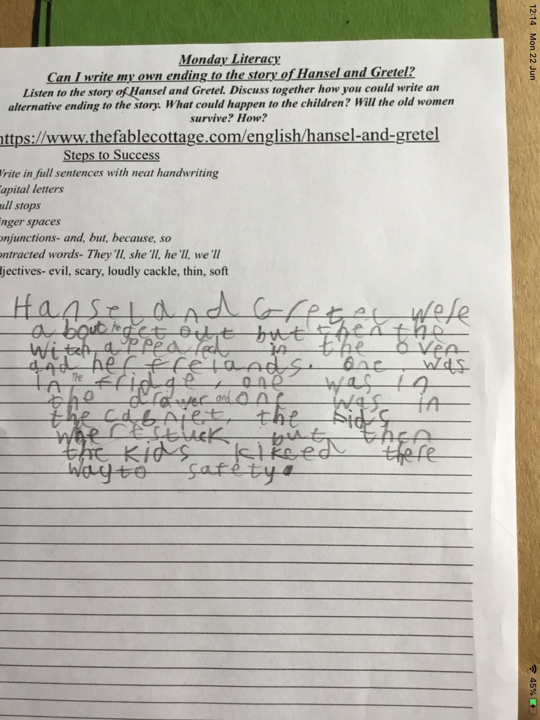 12:14 Mon 22 Jun
45%
Monday Literacy
Can I write my own ending to the story of Hansel and Gretel?
Listen to the story of Hansel and Gretel. Discuss together how you could write an
alternative ending to the story. What could happen to the children? Will the old women
survive? How?
ttps://www.thefablecottage.com/english/hansel-and-gretel
Steps to Success
Write in full sentences with neat handwriting
apital letters
ull stops
inger spaces
onjunctions- and, but, because, so
ontracted words- They'll, she'll, he'll, we'll
djectives- evil, scary, loudly cackle, thin, soft
Hansel and Gretel were
about to get out but then the
witch appeared in the oven
and her freiands. one was
in the fridge, one was in
the drawer and one was in
the cabniet, the kids
where stuck but then
the kids kikced there
way to safety.